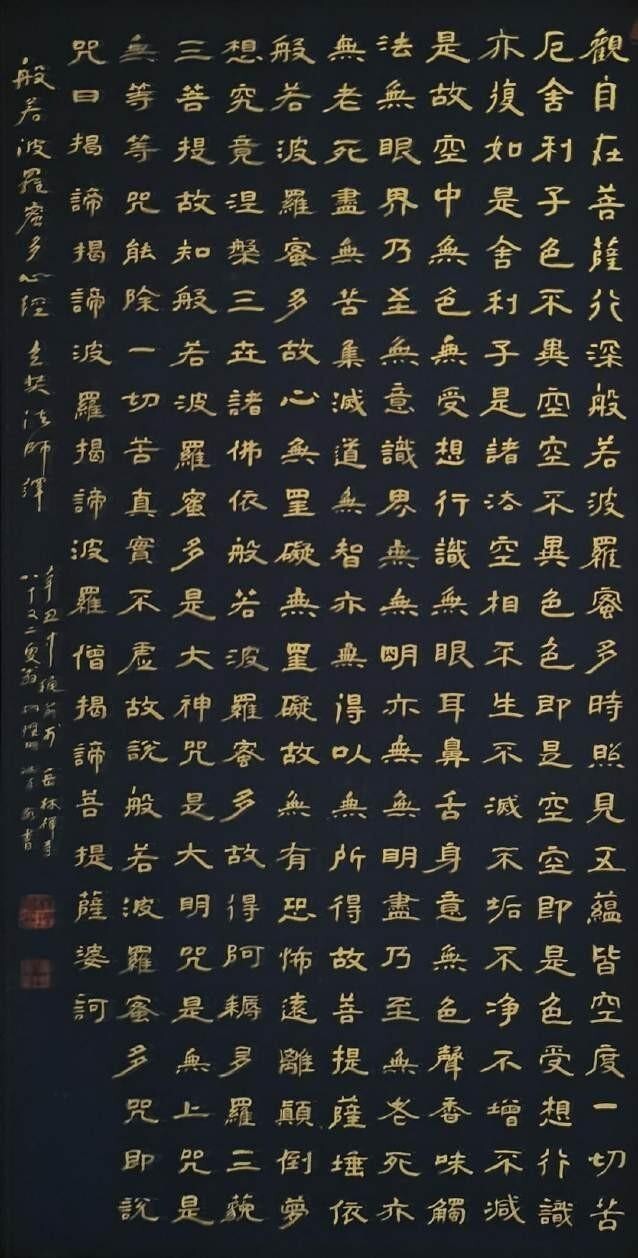 觀自在菩薩行深般若波羅蜜多時照見五蘊皆空度一切苦
厄舍利子色不異空空不異色色即是空空即是色受想行識
亦復如是舍利子是諸法空相不生不滅不垢不净不增不減
是故空中無色無受想行識無眼耳鼻舌身意無色聲香味觸
法無眼界乃至無意識界無無明亦無無明盡乃至無老死亦
無老死盡無苦集滅道無智亦無得以無所得故菩提薩埵依
般若波羅蜜多故心無罣礙無罣礙故無有恐怖遠離顛倒夢
想究竟涅槃三世諸佛依般若波羅蜜多故得阿耨多羅三藐
三菩提故知般若波羅蜜多是大神咒是大明咒是無上咒是
無等等咒能除一切苦真實不虛故說般若波羅蜜多咒即說
咒曰揭諦揭諦波羅揭諦波羅僧揭諦菩提薩婆訶
般若波羅蜜多心經 玄奘法師譯
辛丑中秋前於岳林禪寺
八十又二叟翁 書